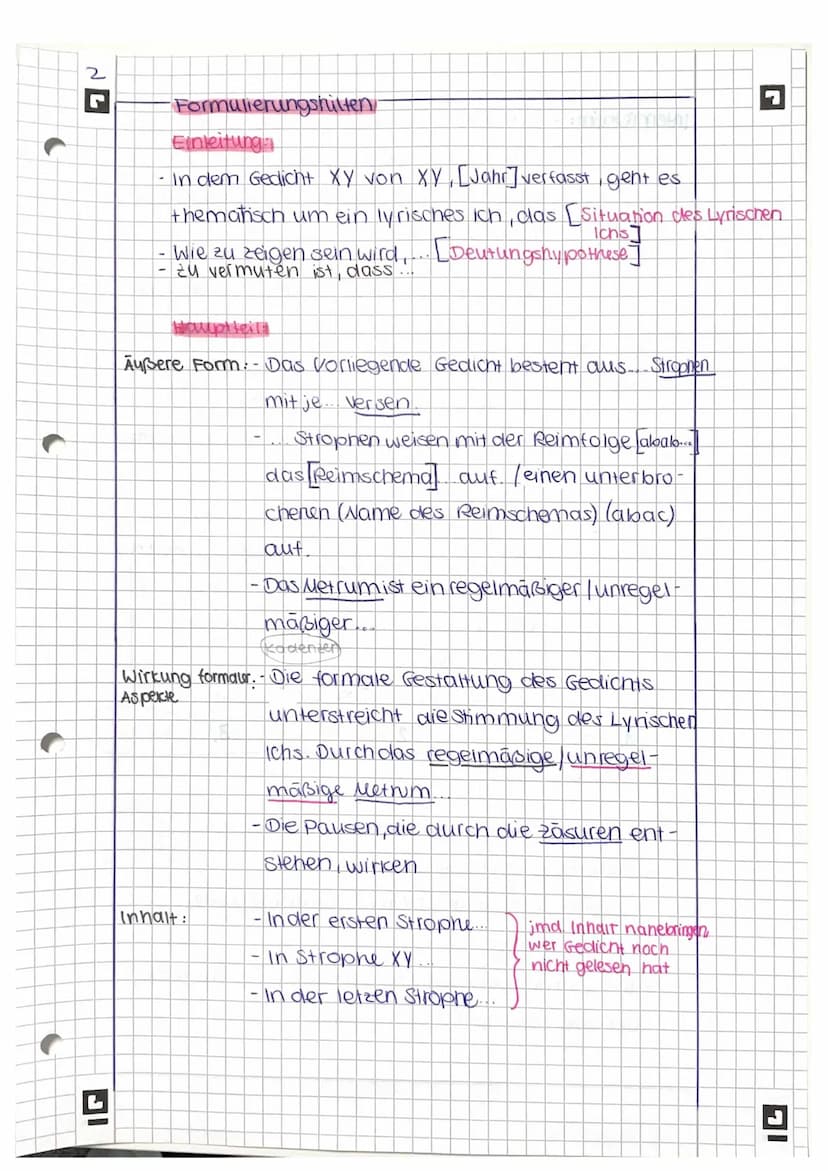 2
Formulierungshilfen
Einleitung:
- In dem Gedicht XY von XY, [Jahr] verfasst, geht es
thematisch um ein lyrisches Ich, das [Situation des Lyrischen
Ichs]
- Wie zu zeigen sein wird, ... [Deutungshypothese]
- zu vermuten ist, dass ...
Hauptteil:
Äußere Form: - Das Vorliegende Gedicht besteht aus... Strophen
mit je... Versen.
- ... Strophen weisen mit der Reimfolge [abab...]
das [Reimschema] auf. / einen unterbro-
chenen (Name des Reimschemas) (abac)
auf.
- Das Metrum ist ein regelmäßiger / unregel-
mäßiger...
Kadenzen
Wirkung formaler: - Die formale Gestaltung des Gedichts
Aspekte
unterstreicht die Stimmung des Lyrischen
Ichs. Durch das regelmäßige / unregel-
mäßige Metrum...
- Die Pausen, die durch die Zäsuren ent-
stehen, wirken
Inhalt: - In der ersten Strophe... jmd. Inhalt nahebringen,
- In Strophe XY... wer Gedicht noch
nicht gelesen hat
- In der letzen Strophe...